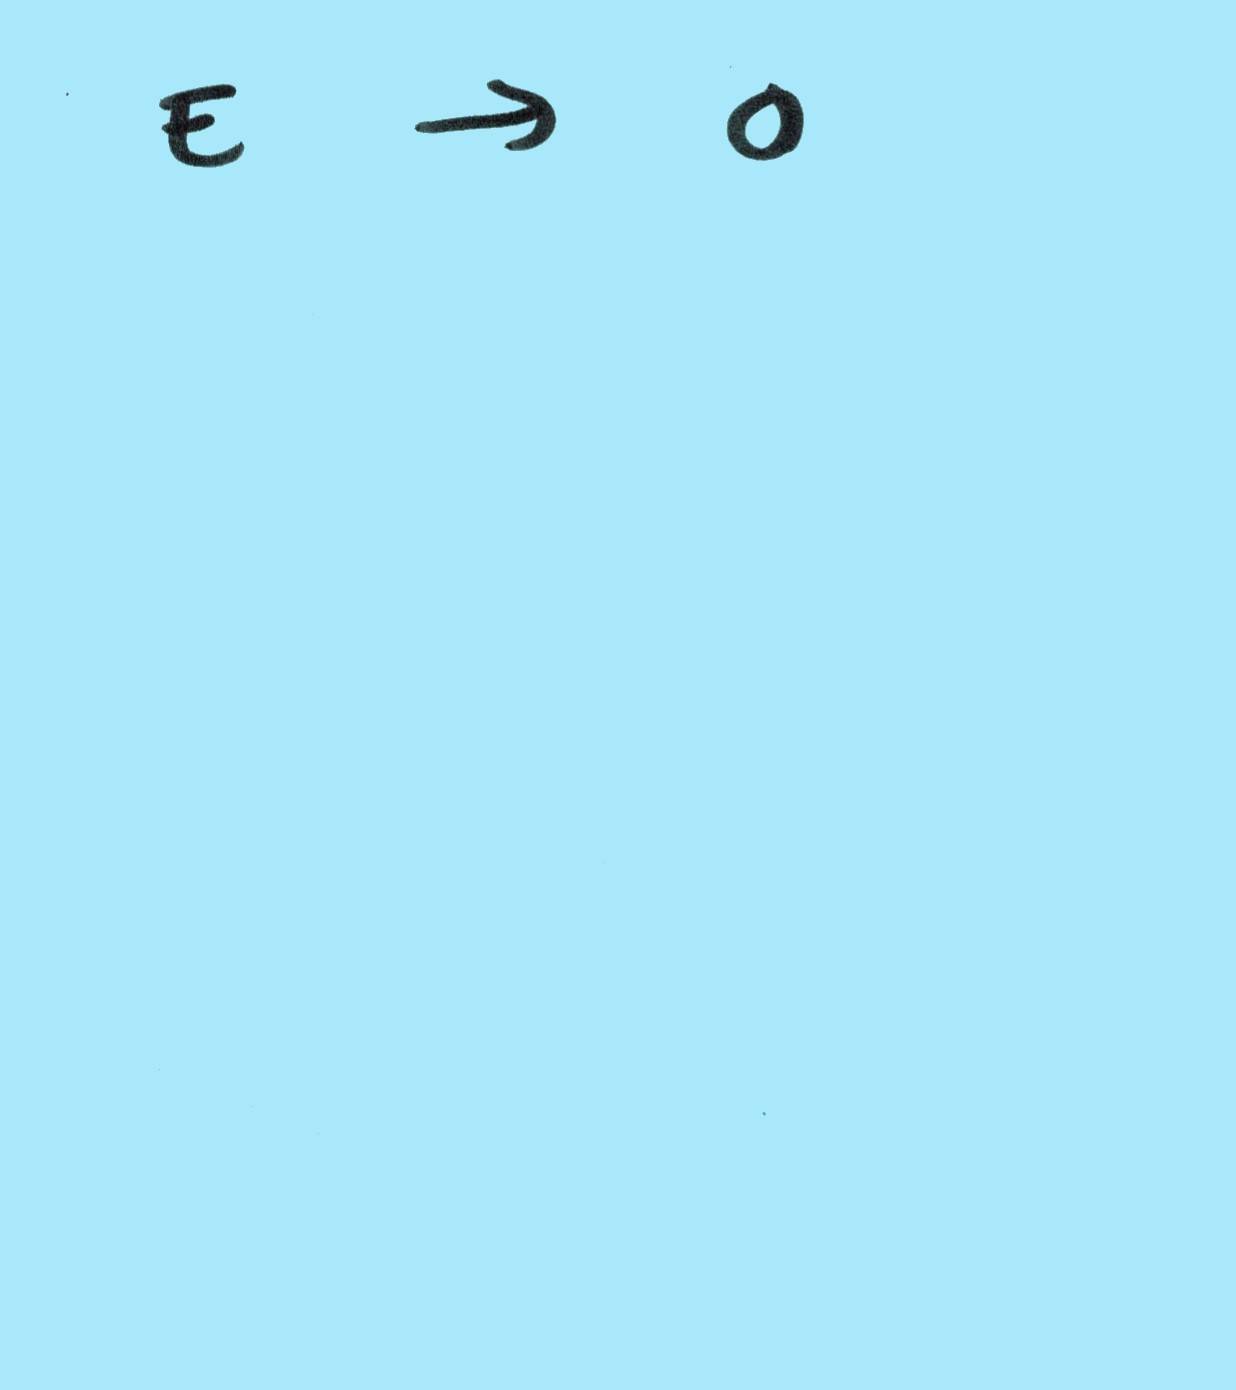 E → O